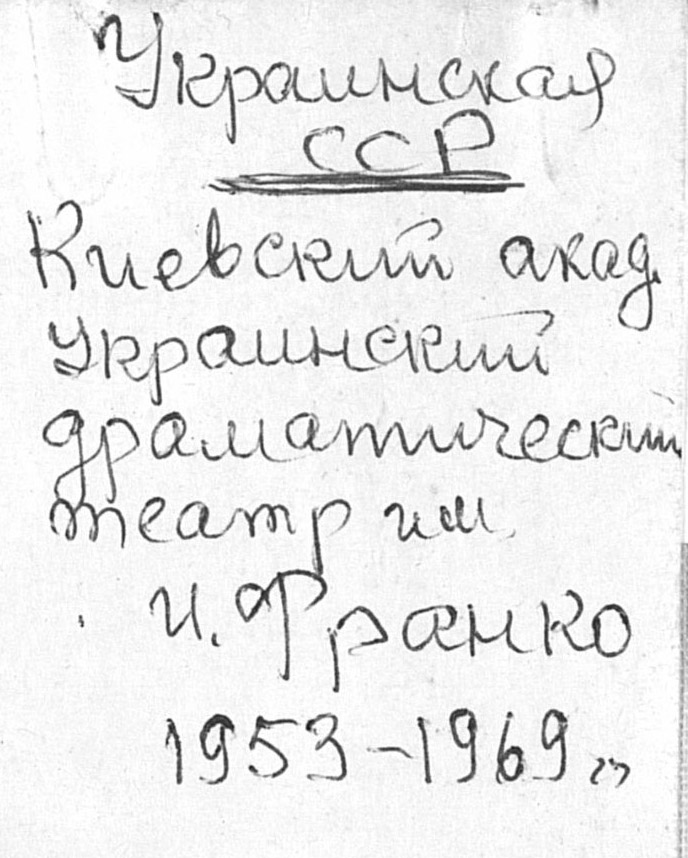 Украинская
ССР
Киевский акад.
Украинский
драматический
театр им.
И. Франко
1953-1969„